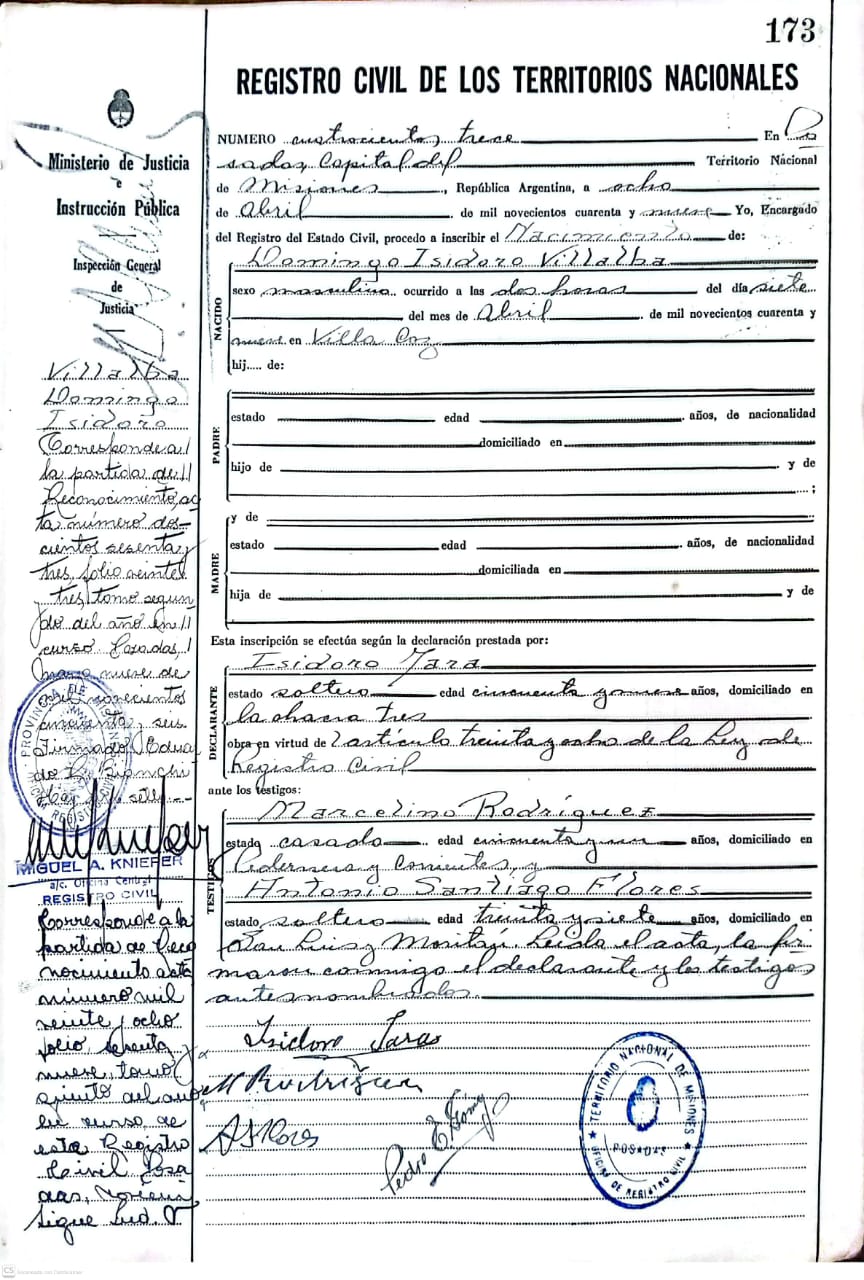 173
REGISTRO CIVIL DE LOS TERRITORIOS NACIONALES
Ministerio de Justicia
e
Instrucción Pública
Inspección General
de
Justicia
NUMERO cuatrocientos trece En Po
sadas, Capital del Territorio Nacional
de Misiones, República Argentina, a ocho
de Abril de mil novecientos cuarenta y nueve Yo, Encargado
del Registro del Estado Civil, procedo a inscribir el Nacimiento de:
NACIDO
Domingo Isidoro Villalba
sexo masculino ocurrido a las dos horas del día siete
del mes de Abril de mil novecientos cuarenta y
nueve en Villa
hij..... de:
PADRE
estado edad años, de nacionalidad
domiciliado en
hijo de y de
;
MADRE
y de
estado edad años, de nacionalidad
domiciliada en
hija de y de
Esta inscripción se efectúa según la declaración prestada por:
DECLARANTE
Isidoro Jara
estado soltero edad cincuenta y nueve años, domiciliado en
la chacra tres
obra en virtud de artículo treinta y ocho de la Ley de
Registro Civil
ante los testigos:
TESTIGOS
Marcelino Rodríguez
estado casado edad cincuenta y un años, domiciliado en
y Corrientes, y
Antonio Santiago Flores
estado soltero edad treinta y siete años, domiciliado en
San Luis y Leída el acta, la fir
maron conmigo el declarante y los testigos
antes nombrados.
Isidoro Jaras
M Rodriguez
A S Flores
Pedro E Gómez
TERRITORIO NACIONAL DE MISIONES
POSADAS
OFICINA DE REGISTRO CIVIL
Villalba
Domingo
Isidoro
Corresponde a
la partida de
Reconocimiento, ac
ta número dos-
cientos sesenta y
tres, folio veinte
tres, tomo segun
do del año en
curso. Posadas,
marzo nueve de
mil novecientos
cincuenta,
firmado: Eduar
do R. Bianchi
Hay sello.-
MIGUEL A. KNIEFER
a/c. Oficina Central
REGISTRO CIVIL
Corresponde a la
partida de Reco
nocimiento acta
número mil
veinte y ocho
folio sesenta y
nueve, tomo
quinto del año
en curso, de
esta Registro
Civil Posa
das,
Sigue
CS